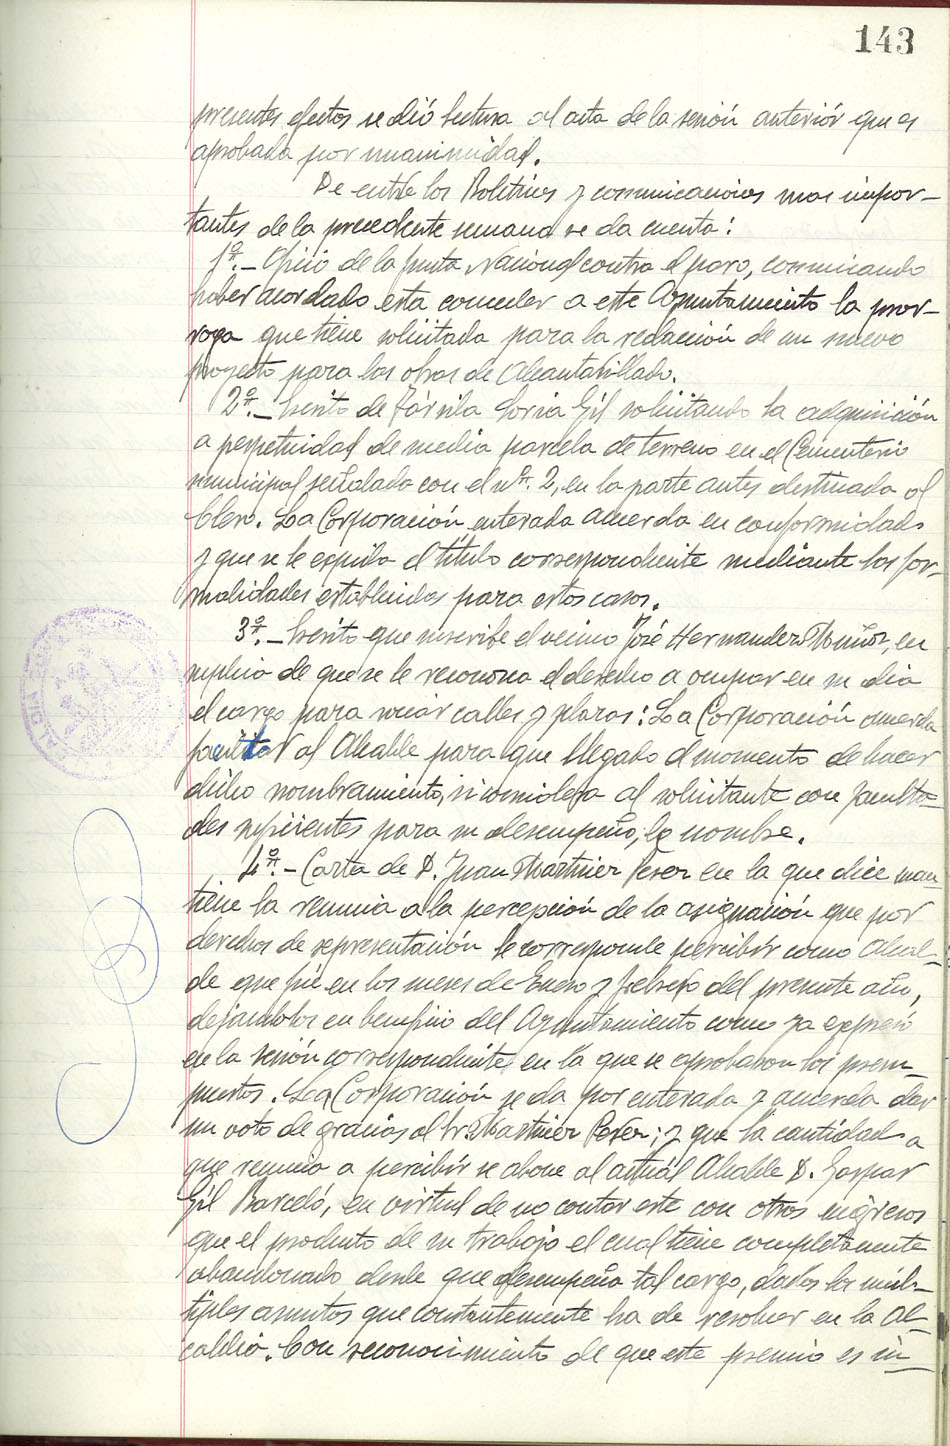 143
presentes efectos se dió lectura al acta de la sesión anteriór que es
aprobada por unanimidad.
De entre los Boletines y comunicaciones mas impor-
tantes de la precedente semana se da cuenta:
1º.- Oficio de la Junta Nacional contra el paro, comunicando
haber acordado esta conceder a este Ayuntamiento la pror-
roga que tiene solicitada para la redacción de un nuevo
proyecto para las obras de Alcantarillado.
2º.- Escrito de Soria Gil solicitando la adquisición
a perpetuidad de media parcela de terreno en el Cementerio
municipal señalada con el nº. 2, en la parte antes destinada al
Clero. La Corporación enterada acuerda en conformidad
y que se le expida el título correspondiente mediante las for-
malidades establecidas para estos casos.
3º.- Escrito que suscribe el vecino José Hernandez Muñoz, en
suplica de que se le reconozca el derecho a ocupar en su dia
el cargo para calles y plazas: La Corporación acuerda
facultar al Alcalde para que llegado el momento de hacer
dicho nombramiento, si considera al solicitante con faculta-
des suficientes para su desempeño, le nombre.
4º.- Carta de D. Juan Martinez en la que dice man-
tiene la renuncia a la percepción de la asignación que por
derechos de representación le corresponde percibir como Alcal-
de que fué en los meses de Enero y Febrero del presente año,
dejandolos en beneficio del Ayuntamiento como ya expresó
en la sesión correspondiente en la que se aprobaron los presu-
puestos. La Corporación se da por enterada y acuerda dar
un voto de gracias al Sr. Martinez; y que la cantidad a
que renuncia a percibir se abone al actuál Alcalde D. Gaspar
Gil Barceló, en virtud de no contar este con otros ingresos
que el producto de su trabajo el cual tiene completamente
abandonado desde que desempeña tal cargo, dados los múl-
tiples asuntos que constantemente ha de resolver en la Al-
caldia. Con reconocimiento de que este premio es in-